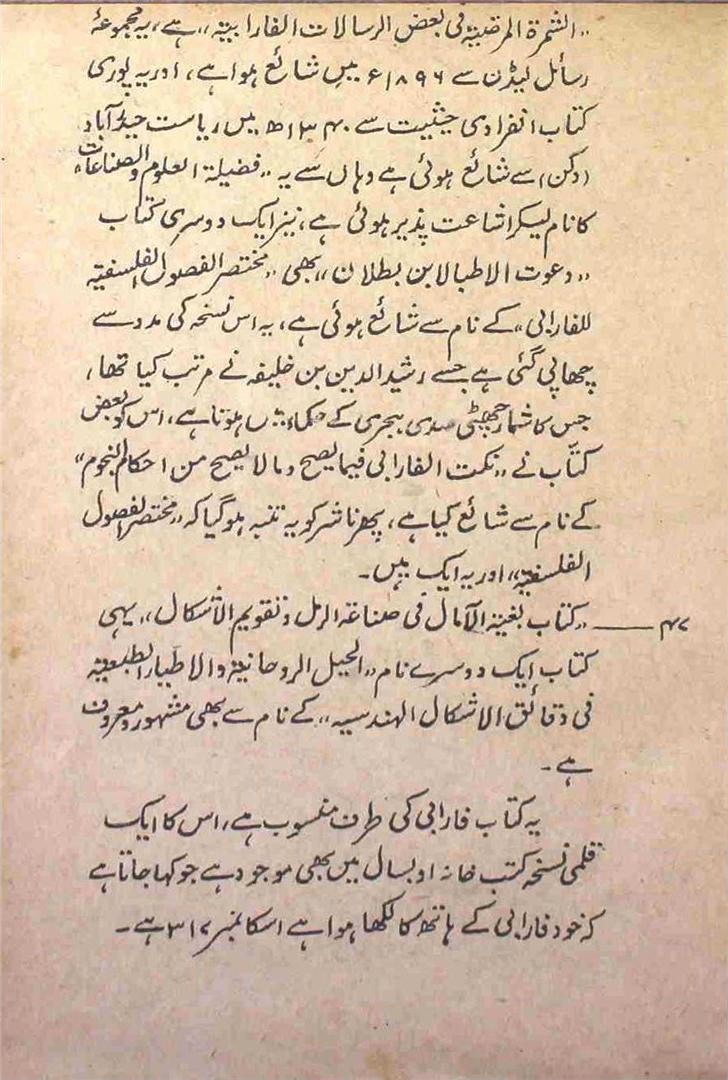 ،،الثمرة المرضیۃ فی بعض الرسالات الفارابیۃ،، ہے، یہ مجموعۂ
رسائل لیڈن سے ۱۸۹۶ء میں شائع ہوا ہے، اور یہ پوری
کتاب انفرادی حیثیت سے ۱۳۴۰ھ میں ریاست حیدرآباد
(دکن) سے شائع ہوئی ہے وہاں سے یہ ،،فضیلۃ العلوم والصناعات،،
کا نام لیکر اشاعت پذیر ہوئی ہے، نیز ایک دوسری کتاب
،،دعوت الاطبالابن بطلان،، بھی ،،مختصر الفصول الفلسفیۃ
للفارابی،، کے نام سے شائع ہوئی ہے، یہ اس نسخہ کی مدد سے
چھاپی گئی ہے جسے رشید الدین بن خلیفہ نے مرتب کیا تھا،
جس کا شمار چھٹی صدی ہجری کے حکماء میں ہوتا ہے، اس کو بعض
کتّاب نے ،،نکت الفارابی فیما یصح وما لا یصح من احکام النجوم،،
کے نام سے شائع کیا ہے، پھر ناشر کو یہ تنبہ ہوگیا کہ ،،مختصر الفصول
الفلسفیۃ،، اور یہ ایک ہیں۔
۴۷ — ،،کتاب بغیۃ الآمال فی صناعۃ الرمل وتقویم الأشکال،، یہی
کتاب ایک دوسرے نام ،،الحیل الروحانیۃ والاطبار الطبعیۃ
فی دقائق الاشکال الہندسیہ،، کے نام سے بھی مشہور و معروف
ہے۔
یہ کتاب فارابی کی طرف منسوب ہے، اس کا ایک
قلمی نسخہ کتب خانہ اوبسال میں بھی موجود ہے جو کہا جاتا ہے
کہ خود فارابی کے ہاتھ کا لکھا ہوا ہے اسکا نمبر ۳۱۷ ہے۔